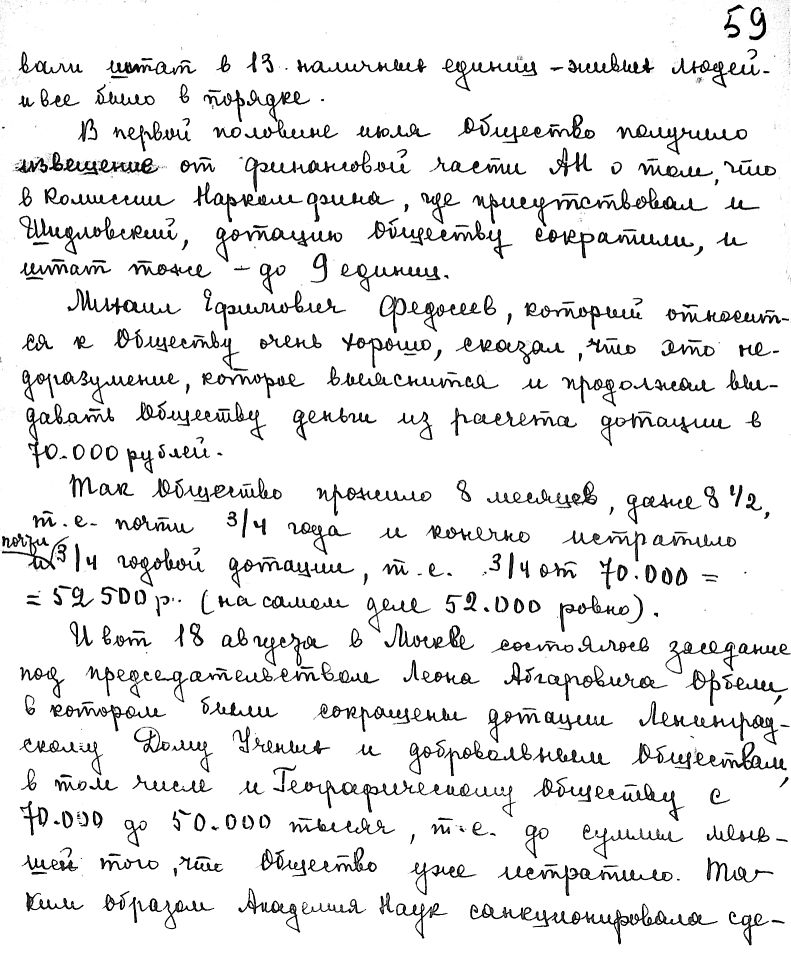 59
вали штат в 13 наличных единиц – живых людей –
и все было в порядке.
В первой половине июля Общество получило
извещение от финансовой части АН о том, что
в Комиссии Наркомфина, где присутствовал и
Шидловский, дотацию Обществу сократили, и
штат тоже – до 9 единиц.
Михаил Ефимович Федосеев, который относит-
ся к Обществу очень хорошо, сказал, что это не-
доразумение, которое выяснится и продолжал вы-
давать Обществу деньги из расчета дотации в
70.000 рублей.
Так Общество прожило 8 месяцев, даже 8 1/2,
т.е. почти 3/4 года и конечно истратило
почти
и 3/4 годовой дотации, т.е. 3/4 от 70.000 =
= 52 500 р. (на самом деле 52.000 ровно).
И вот 18 августа в Москве состоялось заседание
под председательством Леона Абгаровича Орбели,
в котором были сокращены дотации Ленинград-
скому Дому Ученых и добровольным Обществам,
в том числе и Географическому Обществу с
70.000 до 50.000 тысяч, т.е. до суммы мень-
шей того, что Общество уже истратило. Та-
ким образом Академия Наук санкционировала сде-